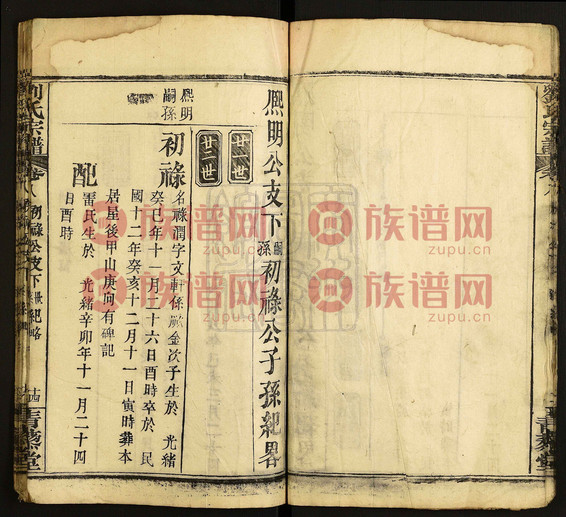 熙明公支下嗣孫初祿公子孫紀畧
廿一世
廿二世
熙明
嗣孫
初祿
名祿潤字文軒係金次子生於 光緒
癸巳年十一月二十六日酉時卒於 民
國十二年癸亥十二月十一日寅時葬本
居屋後甲山庚向有碑記
配
雷氏生於 光緒辛卯年十一月二十四
日酉時
劉氏宗譜
卷八
初祿公支下
紀略
十四
青藜堂
族谱网
zupu.cn
族谱网
zupu.cn
族谱网
zupu.cn
族谱网
zupu.cn